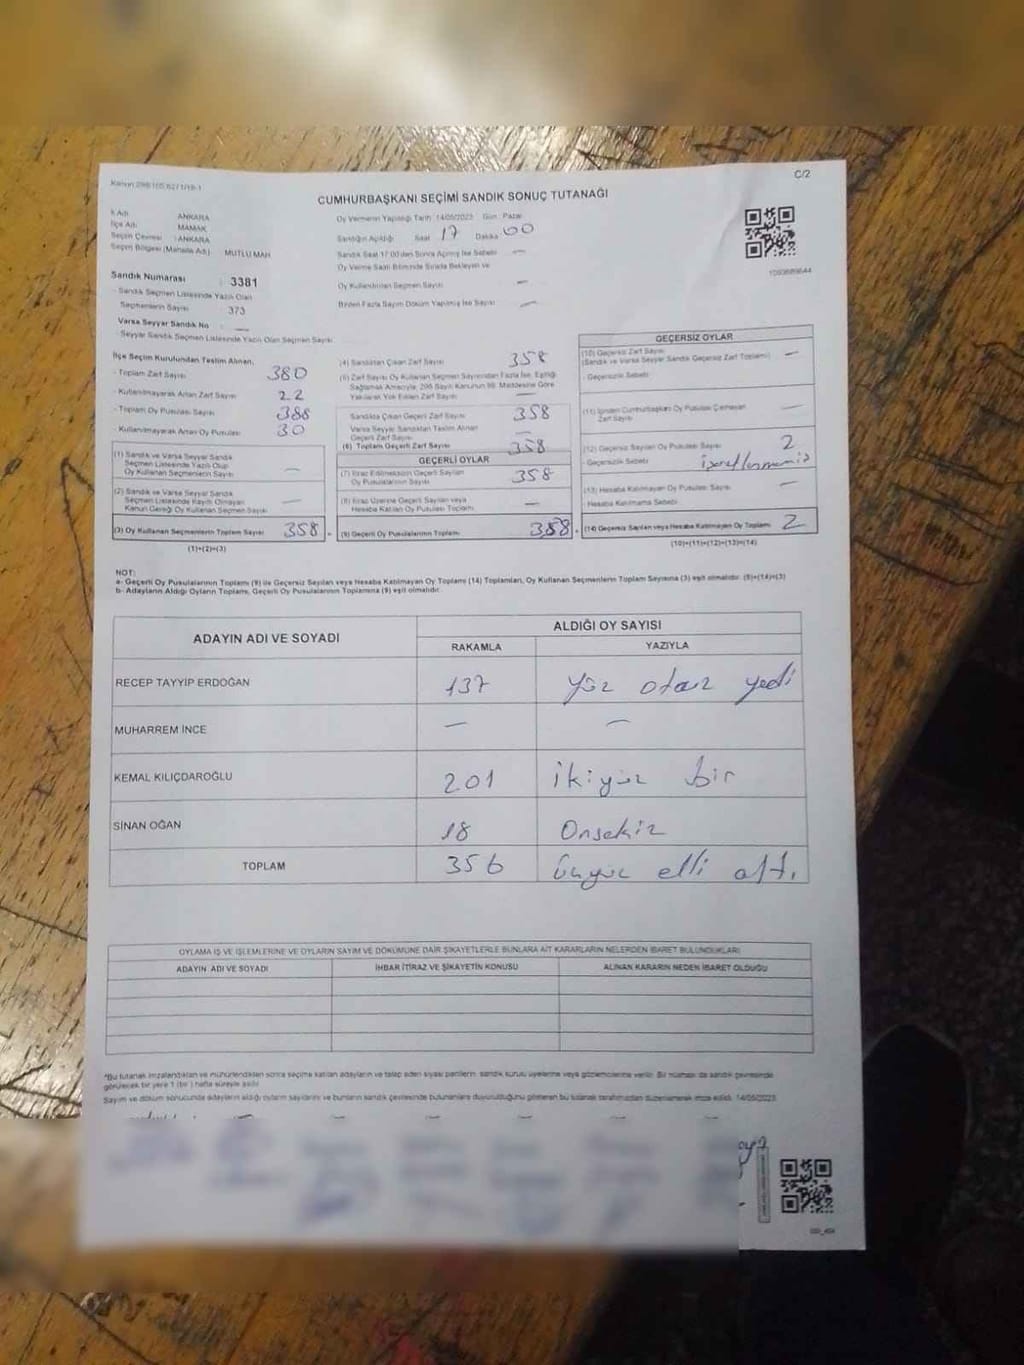 C/2
CUMHURBAŞKANI SEÇİMİ SANDIK SONUÇ TUTANAĞI
İl Adı ANKARA
İlçe Adı MAMAK
Seçim Çevresi : ANKARA
Seçim Bölgesi (Mahalle Adı) MUTLU MAH
Oy Vermenin Yapıldığı Tarih : 14/05/2023 Gün : Pazar
Sandığın Açıldığı Saat 17 Dakika 00
Sandık Saat 17:00'den Sonra Açılmış İse Sebebi —
Oy Verme Saati Bitiminde Sırada Bekleyen ve
Oy Kullandırılan Seçmen Sayısı —
Birden Fazla Sayım Döküm Yapılmış İse Sayısı —
Sandık Numarası : 3381
- Sandık Seçmen Listesinde Yazılı Olan
Seçmenlerin Sayısı 373
Varsa Seyyar Sandık No : —
- Seyyar Sandık Seçmen Listesinde Yazılı Olan Seçmen Sayısı
İlçe Seçim Kurulundan Teslim Alınan,
- Toplam Zarf Sayısı 380
- Kullanılmayarak Artan Zarf Sayısı 22
- Toplam Oy Pusulası Sayısı 388
- Kullanılmayarak Artan Oy Pusulası 30
(1) Sandık ve Varsa Seyyar Sandık
Seçmen Listesinde Yazılı Olup
Oy Kullanan Seçmenlerin Sayısı —
(2) Sandık ve Varsa Seyyar Sandık
Seçmen Listesinde Kayıtlı Olmayan
Kanun Gereği Oy Kullanan Seçmen Sayısı —
(3) Oy Kullanan Seçmenlerin Toplam Sayısı 358
(1)+(2)=(3)
(4) Sandıktan Çıkan Zarf Sayısı 358
(5) Zarf Sayısı Oy Kullanan Seçmen Sayısından Fazla İse, Eşitliği
Sağlamak Amacıyla; 298 Sayılı Kanunun 98. Maddesine Göre
Yakılarak Yok Edilen Zarf Sayısı —
Sandıkta Çıkan Geçerli Zarf Sayısı 358
Varsa Seyyar Sandıktan Teslim Alınan
Geçerli Zarf Sayısı —
(6) Toplam Geçerli Zarf Sayısı 358
GEÇERLİ OYLAR
(7) İtiraz Edilmeksizin Geçerli Sayılan
Oy Pusulası Sayısı 358
(8) İtiraz Üzerine Geçerli Sayılan veya
Hesaba Katılan Oy Pusulası Toplamı —
(9) Geçerli Oy Pusulalarının Toplamı 358
GEÇERSİZ OYLAR
(10) Geçersiz Zarf Sayısı
(Sandık ve Varsa Seyyar Sandık Geçersiz Zarf Toplamı) —
- Geçersizlik Sebebi
(11) İçinden Cumhurbaşkanı Oy Pusulası Çıkmayan
Zarf Sayısı —
(12) Geçersiz Sayılan Oy Pusulası Sayısı 2
- Geçersizlik Sebebi
(13) Hesaba Katılmayan Oy Pusulası Sayısı —
- Hesaba Katılmama Sebebi
(14) Geçersiz Sayılan veya Hesaba Katılmayan Oy Toplamı 2
(10)+(11)+(12)+(13)=(14)
NOT:
a- Geçerli Oy Pusulalarının Toplamı (9) ile Geçersiz Sayılan veya Hesaba Katılmayan Oy Toplamı (14) Toplamları, Oy Kullanan Seçmenlerin Toplam Sayısına (3) eşit olmalıdır. (9)+(14)=(3)
b- Adayların Aldığı Oyların Toplamı, Geçerli Oy Pusulalarının Toplamına (9) eşit olmalıdır.
ADAYIN ADI VE SOYADI ALDIĞI OY SAYISI
RAKAMLA YAZIYLA
RECEP TAYYIP ERDOĞAN 137 yüz otuz yedi
MUHARREM İNCE — —
KEMAL KILIÇDAROĞLU 201 ikiyüz bir
SİNAN OĞAN 18 Onsekiz
TOPLAM 356 üçyüz elli altı
OYLAMA İŞ VE İŞLEMLERİNE VE OYLARIN SAYIM VE DÖKÜMÜNE DAİR ŞİKAYETLERLE BUNLARA AİT KARARLARIN NELERDEN İBARET BULUNDUKLARI
ADAYIN ADI VE SOYADI İHBAR İTİRAZ VE ŞİKAYETİN KONUSU ALINAN KARARIN NEDEN İBARET OLDUĞU
*Bu tutanak imzalandıktan ve mühürlendikten sonra seçime katılan adayların ve talep eden siyasi partilerin sandık kurulu üyelerine veya gözlemcilerine verilir. Bir nüshası da sandık çevresinde
görülecek bir yere 1 (bir) hafta süreyle asılır
Sayım ve döküm sonucunda adayların aldığı oyların sayılarını ve bunların sandık çevresinde bulunanlara duyurulduğunu gösteren bu tutanak tarafımızdan düzenlenerek imza edildi. 14/05/2023